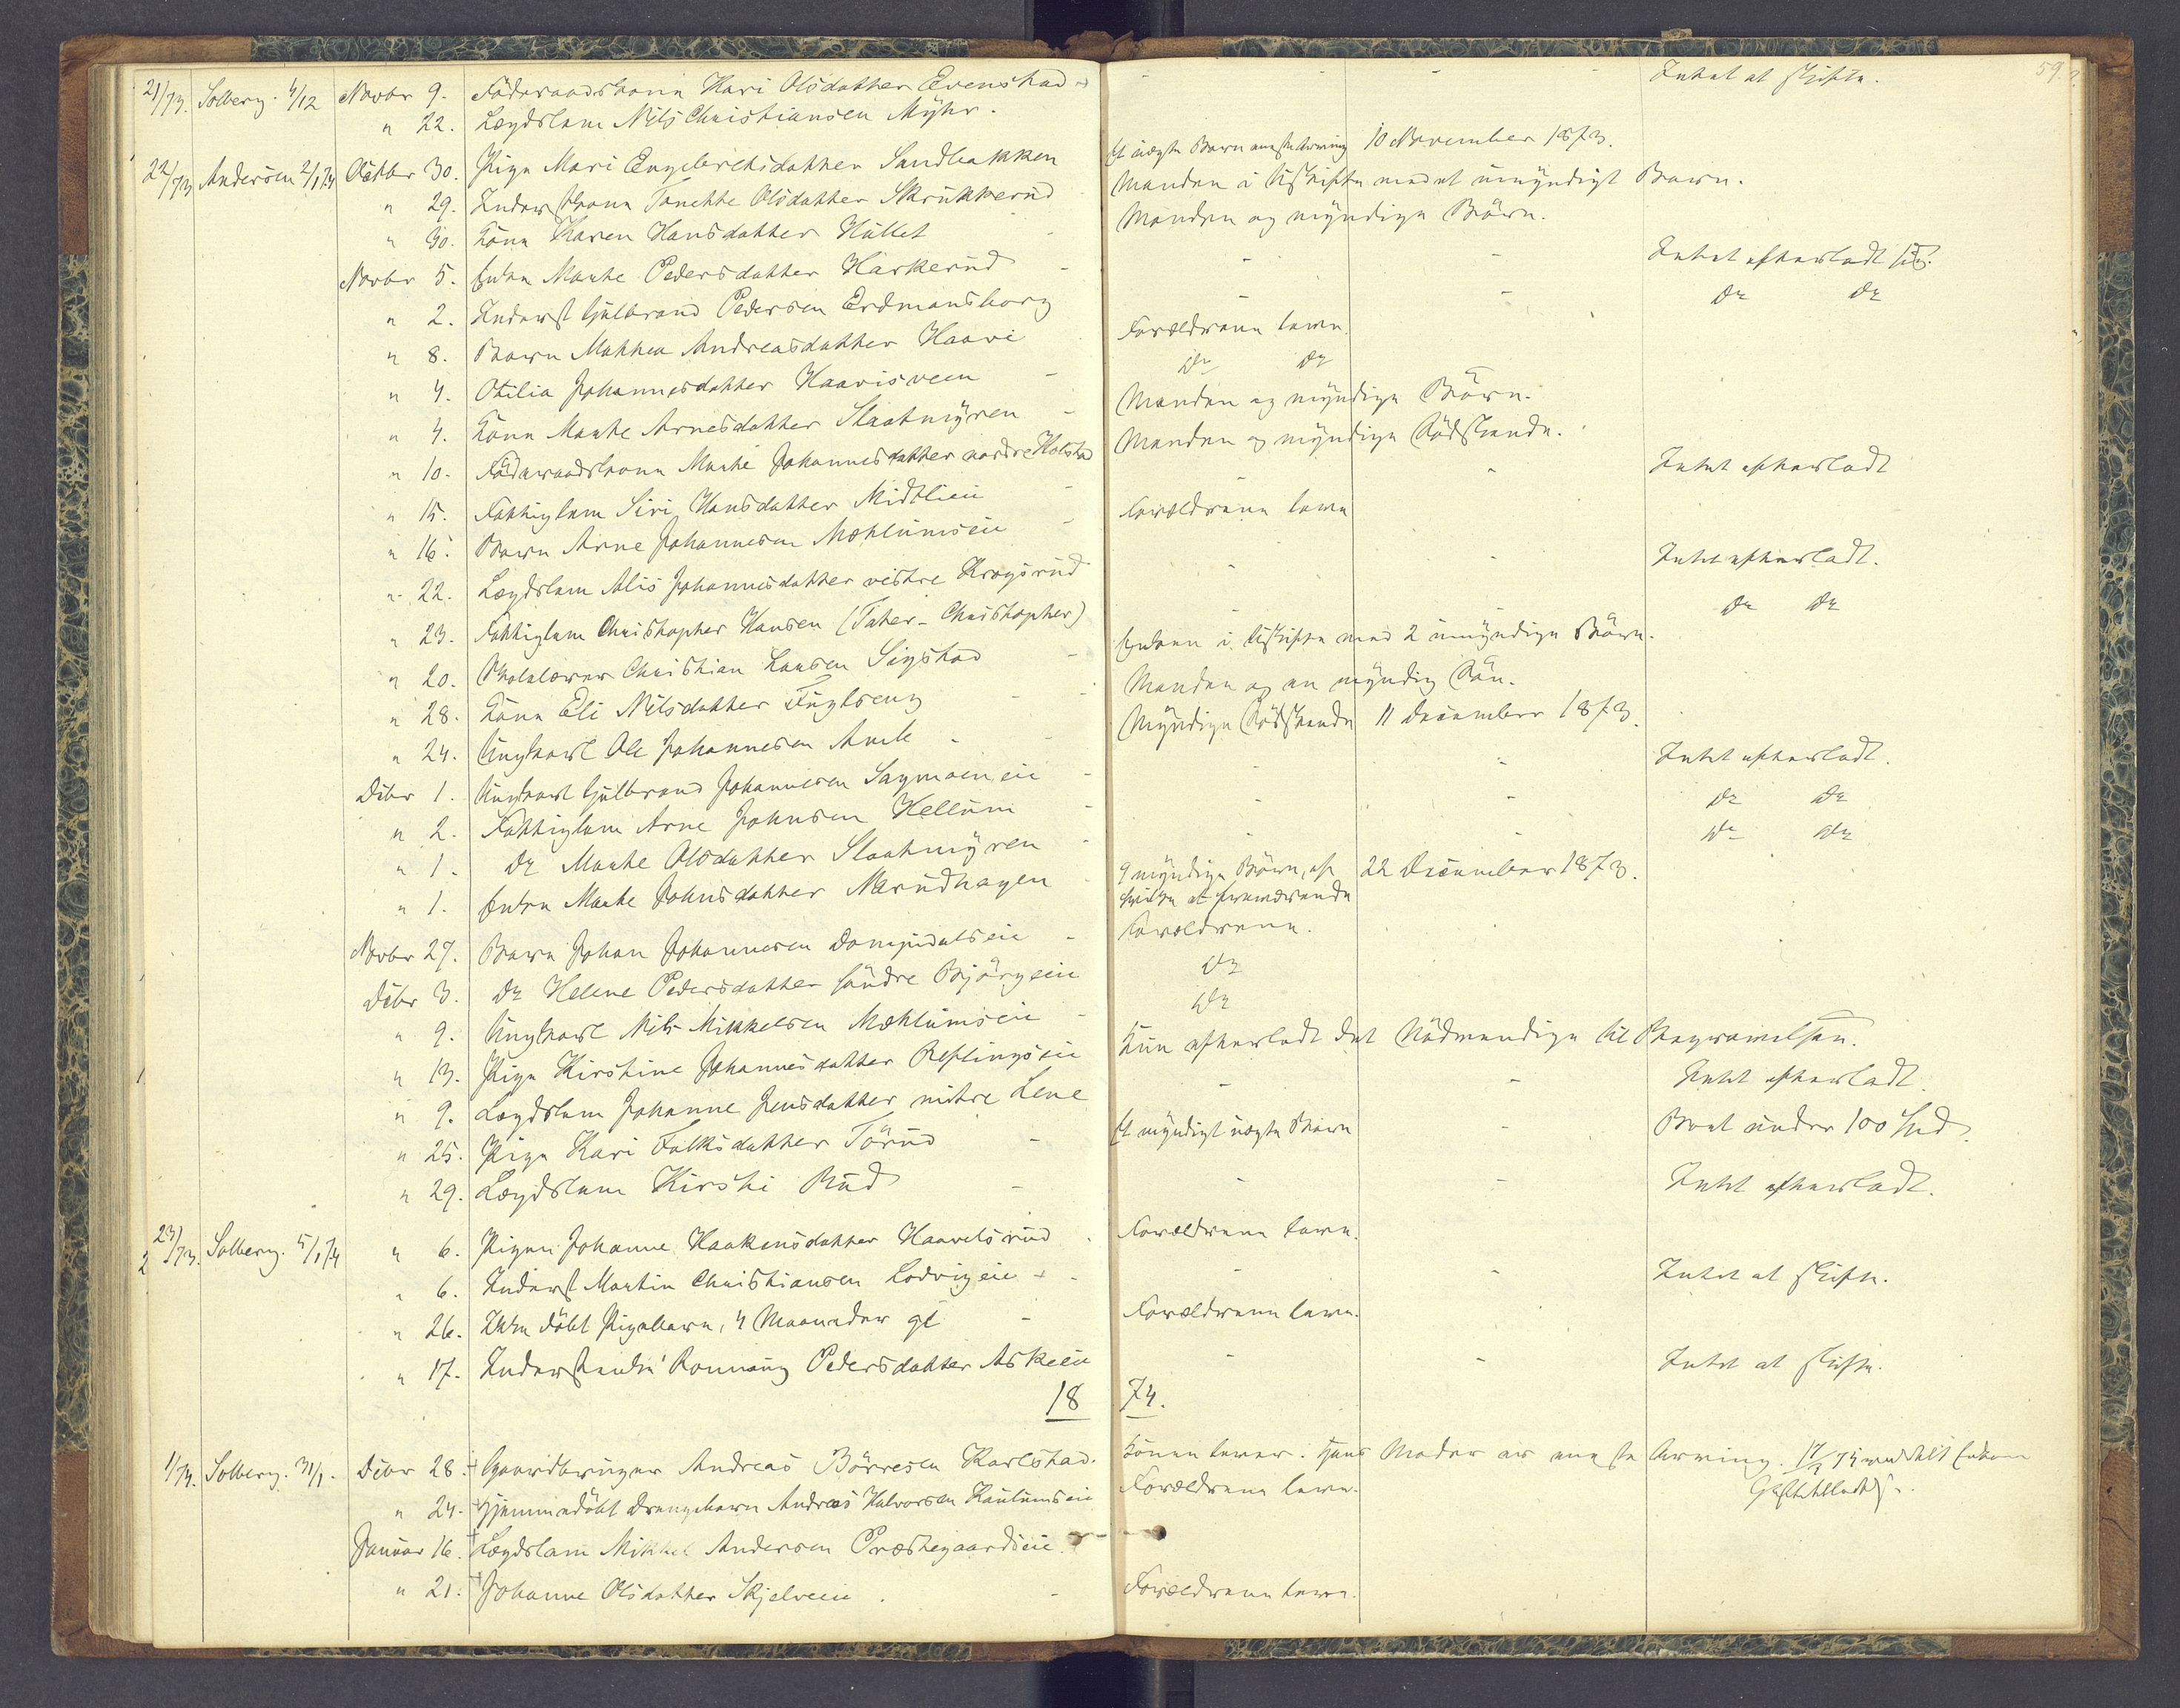 59.
21/73. Solberg. 4/12 Novbr 9. Föderaadskone Kari Olsdatter Evenstad - - - - Intet at skifte.
" 22. Lægdslem Nils Christiansen Myhr.
22/73 Andersen 2/1 74 Octbr 30. Pige Mari Engebretsdatter Sandbakken Et uægte Barn eneste Arving 10 November 1873.
" 29. Inderstkone Tonette Olsdatter Skrukkerud Manden i Uskifte med et umyndigt Barn.
" 30. Kone Karen Hansdatter Hullet - Manden og myndige Börn.
Novbr 5. Enke Marthe Pedersdatter Harkerud - - - Intet efterladt sig.
" 2. Inderst Gulbrand Pedersen Erdmansborg - - Do Do
" 8. Barn Mathea Andreasdatter Haavi Forældrene leve.
" 4. Otilia Johannesdatter Haavisveen - Do Do
" 4. Kone Marthe Arnesdatter Slaatmyren - Manden og myndige Börn.
" 10. Föderaadskone Marthe Johannesdatter nordre Holstad Manden og myndige Södskende.
" 15. Fattiglem Siri Hansdatter Midtlien - - Intet efterladt
" 16. Barn Arne Johannesen Mæhlumseie - Forældrene leve
" 22. Lægdslem Alis Johannesdatter vestre Krogsrud - - Intet efterladt.
" 23. Fattiglem Christopher Hansen (Tater-Christopher) - Do Do
" 20. Skolelærer Christian Larsen Sigstad - Enken i Uskifte med 2 umyndige Börn.
" 28. Kone Eli Nilsdatter Fuglseng - - Manden og en myndig Sön.
" 24. Ungkarl Ole Johannesen Aule - - Myndige Södskende 11 December 1873.
Dcbr 1. Ungkarl Gulbrand Johannesen Sagmoeneie - - - Intet efterladt.
" 2. Fattiglem Arne Johnsen Hellum - - - Do Do
" 1. Do Marthe Olsdatter Slaatmyren - - - Do Do
" 1. Enke Marthe Johnsdatter Narudhagen 9 myndige Börn, af 22 December 1873.
hvilke et fraværende
Novbr 27. Barn Johan Johannesen Dompidalseie - Forældrene.
Dcbr 3. Do Helene Pedersdatter söndre Bjørgeeie Do
" 9. Ungkarl Nils Mikkelsen Mæhlumseie - Do
" 13. Pige Kirstine Johannesdatter Reflingseie Kun efterladt det Nödvendige til Begravelsen.
" 9. Lægdslem Johanne Jensdatter nedre Lene - - Intet efterladt.
" 25. Pige Kari Falksdatter Törud - Et myndigt uægte Barn - Boet under 100 Spd.
" 29. Lægdslem Kirsti Rud - - - Intet efterladt.
23/73. Solberg. 5/1 74 " 6. Pigen Johanne Haakensdatter Haavelsrud - Forældrene leve.
" 6. Inderst Martin Christiansen Lodvigeie - - - Intet at skifte.
" 26. Ikke döbt Pigebarn, 4 Maaneder gl - Forældrene leve.
" 17. Inderstenke Ronnaug Pedersdatter Askeeie - - Intet at skifte.
18 74.
1/74. Solberg. 31/1. Dcbr 28. Gaardbruger Andreas Börresen Karlstad. Konen lever. Hans Moder er eneste Arving. 17/2 74 meddelt Enken
" 24. Hjemmedöbt Drengebarn Andreas Halvorsen Kaulumseie Forældrene leve.
Januar 16. Lægdslem Mikkel Andersen Præstegaardseie.
" 21. Johanne Olsdatter Skjelveeie. - Forældrene leve.